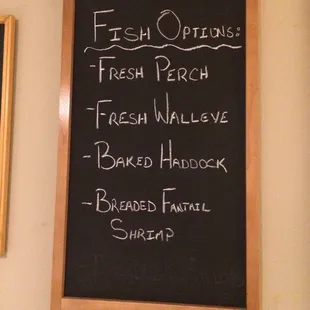 Fish Options:
-Fresh Perch
-Fresh Walleye
-Baked Haddock
-Breaded Fantail
Shrimp